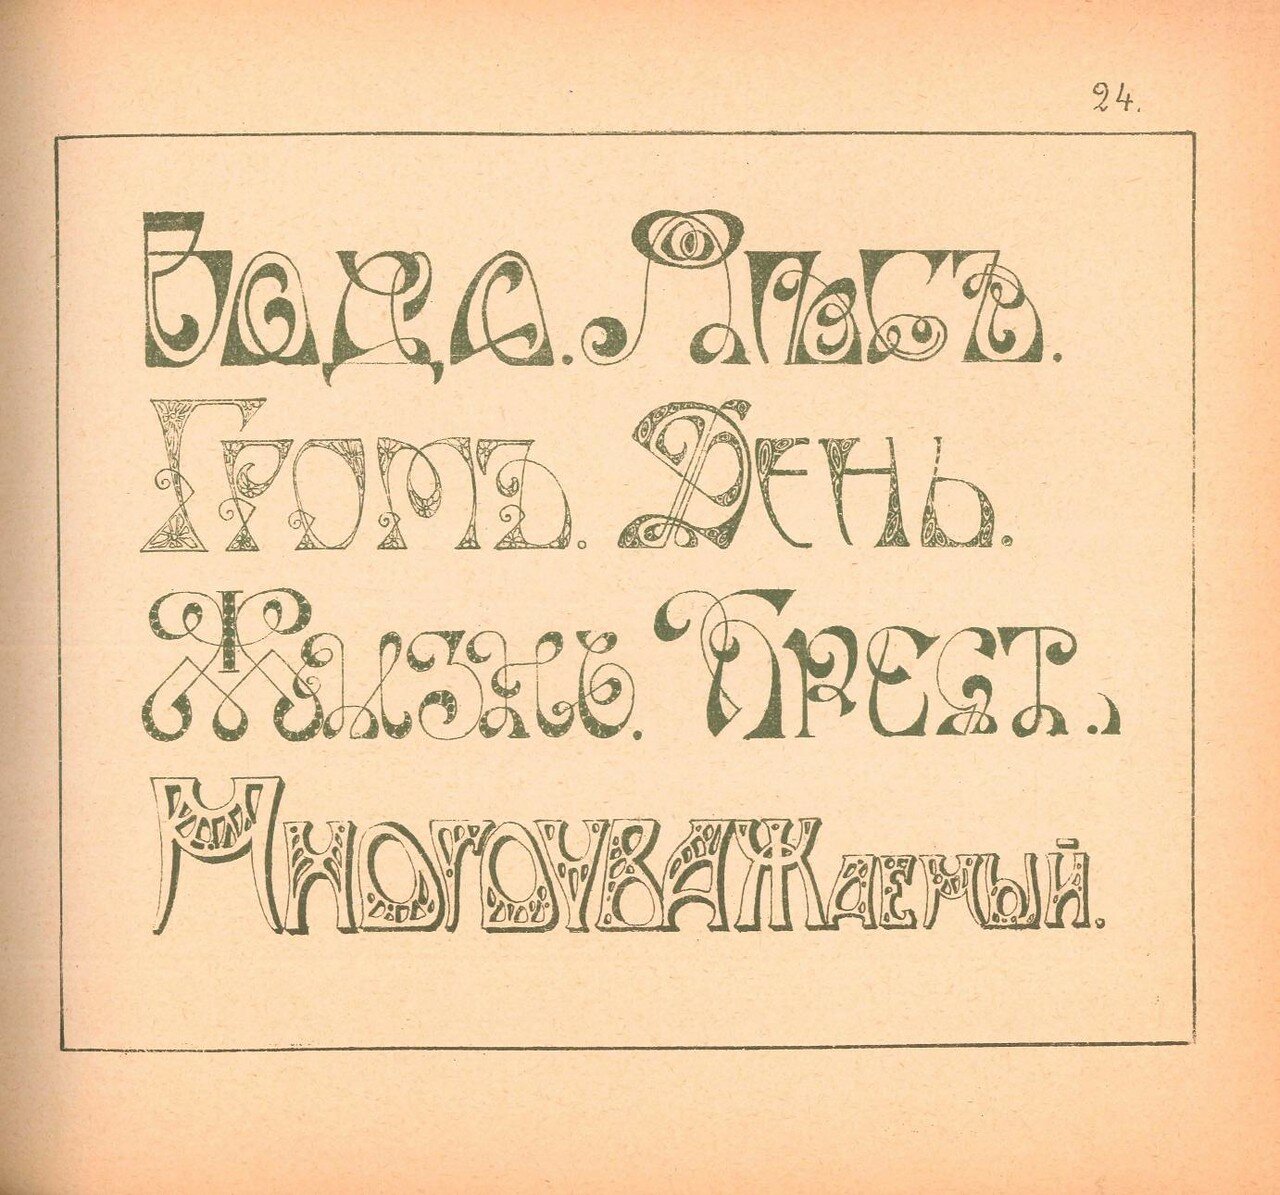 24.
Вода. Лѣсъ.
Громъ. День.
Жизнь. Крест.
Многоуважаемый.